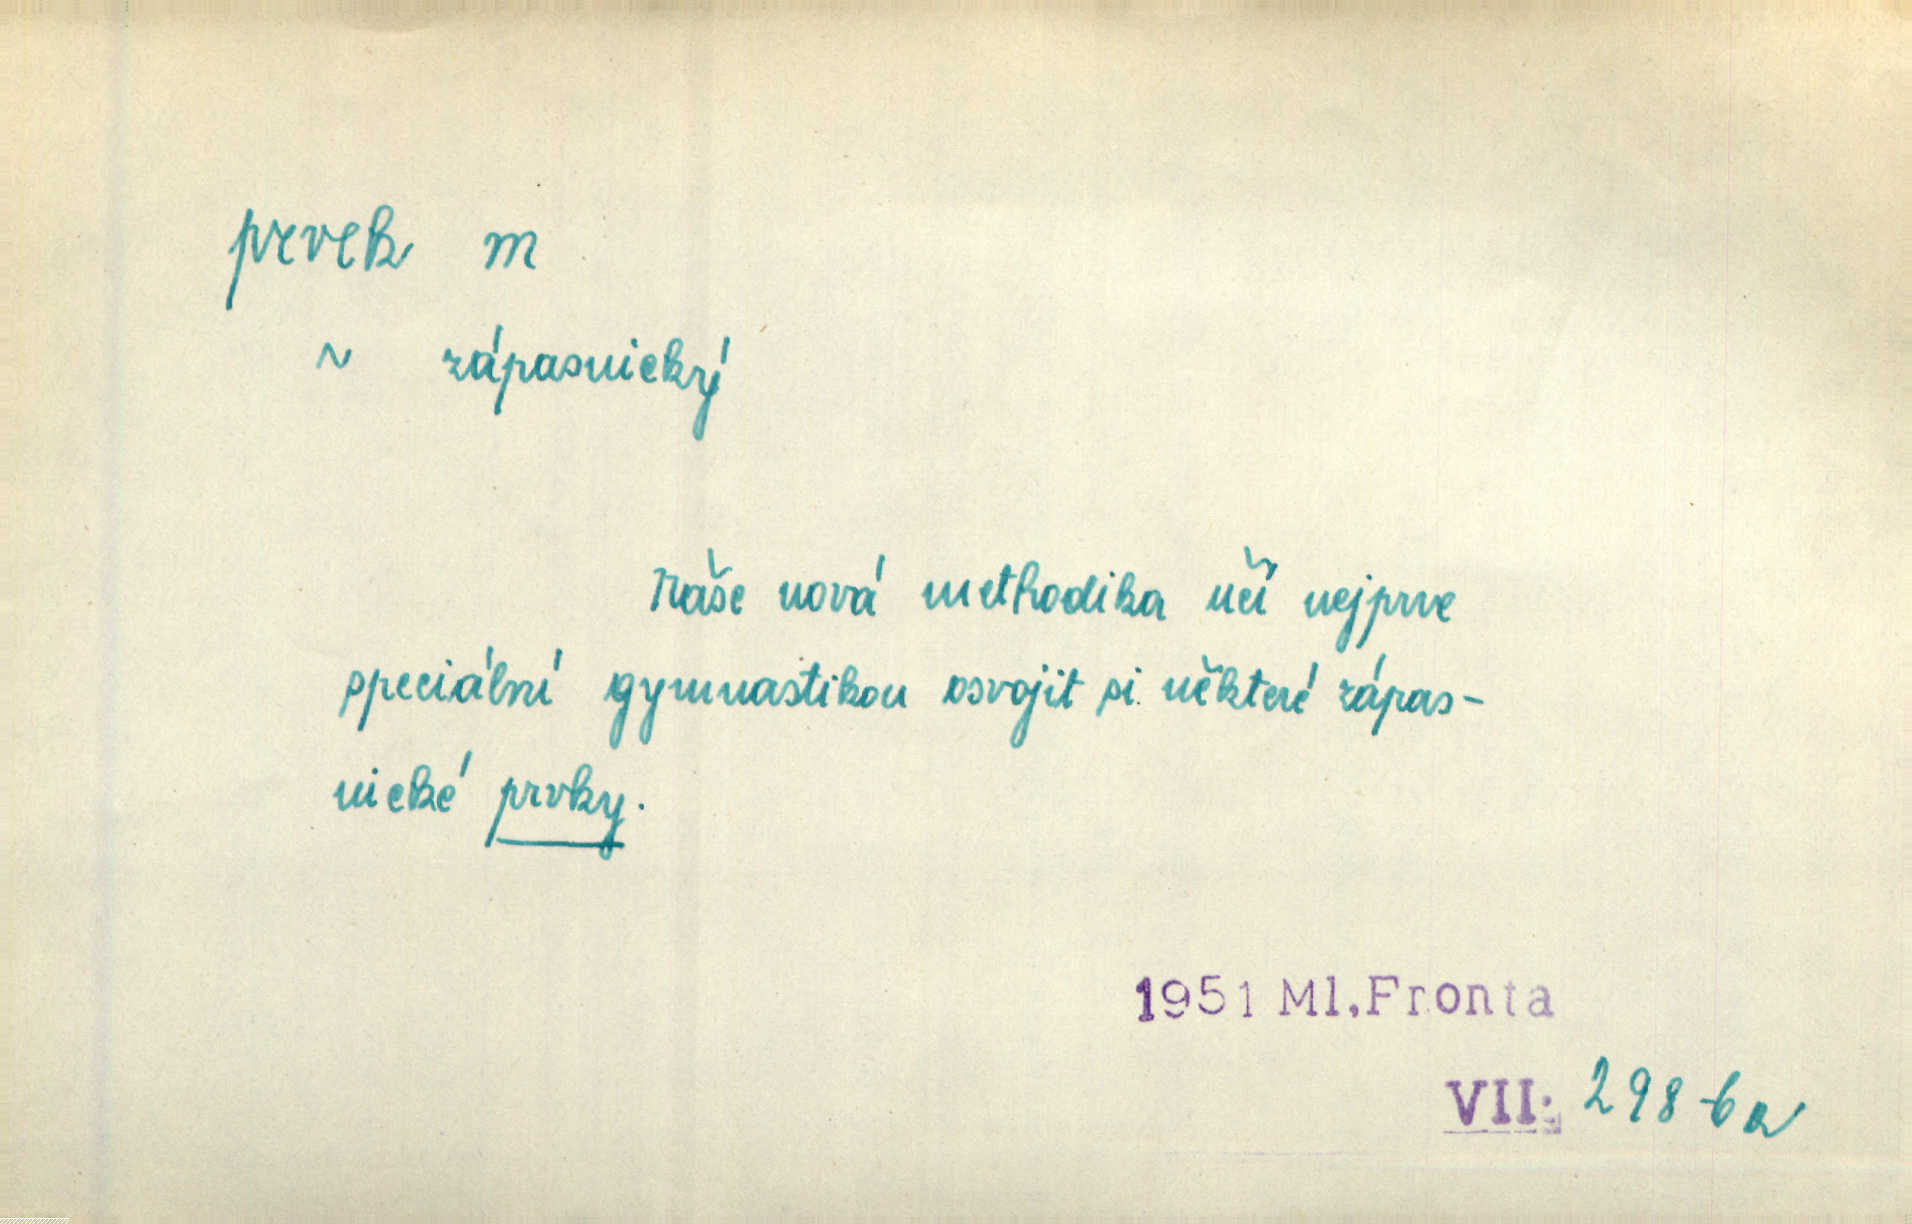 prvek m
~ zápasnický
Naše nová methodika učí nejprve
speciální gymnastikou osvojit si některé zápas-
nické prvky.
1951 Ml.Fronta
VII: 298-6a